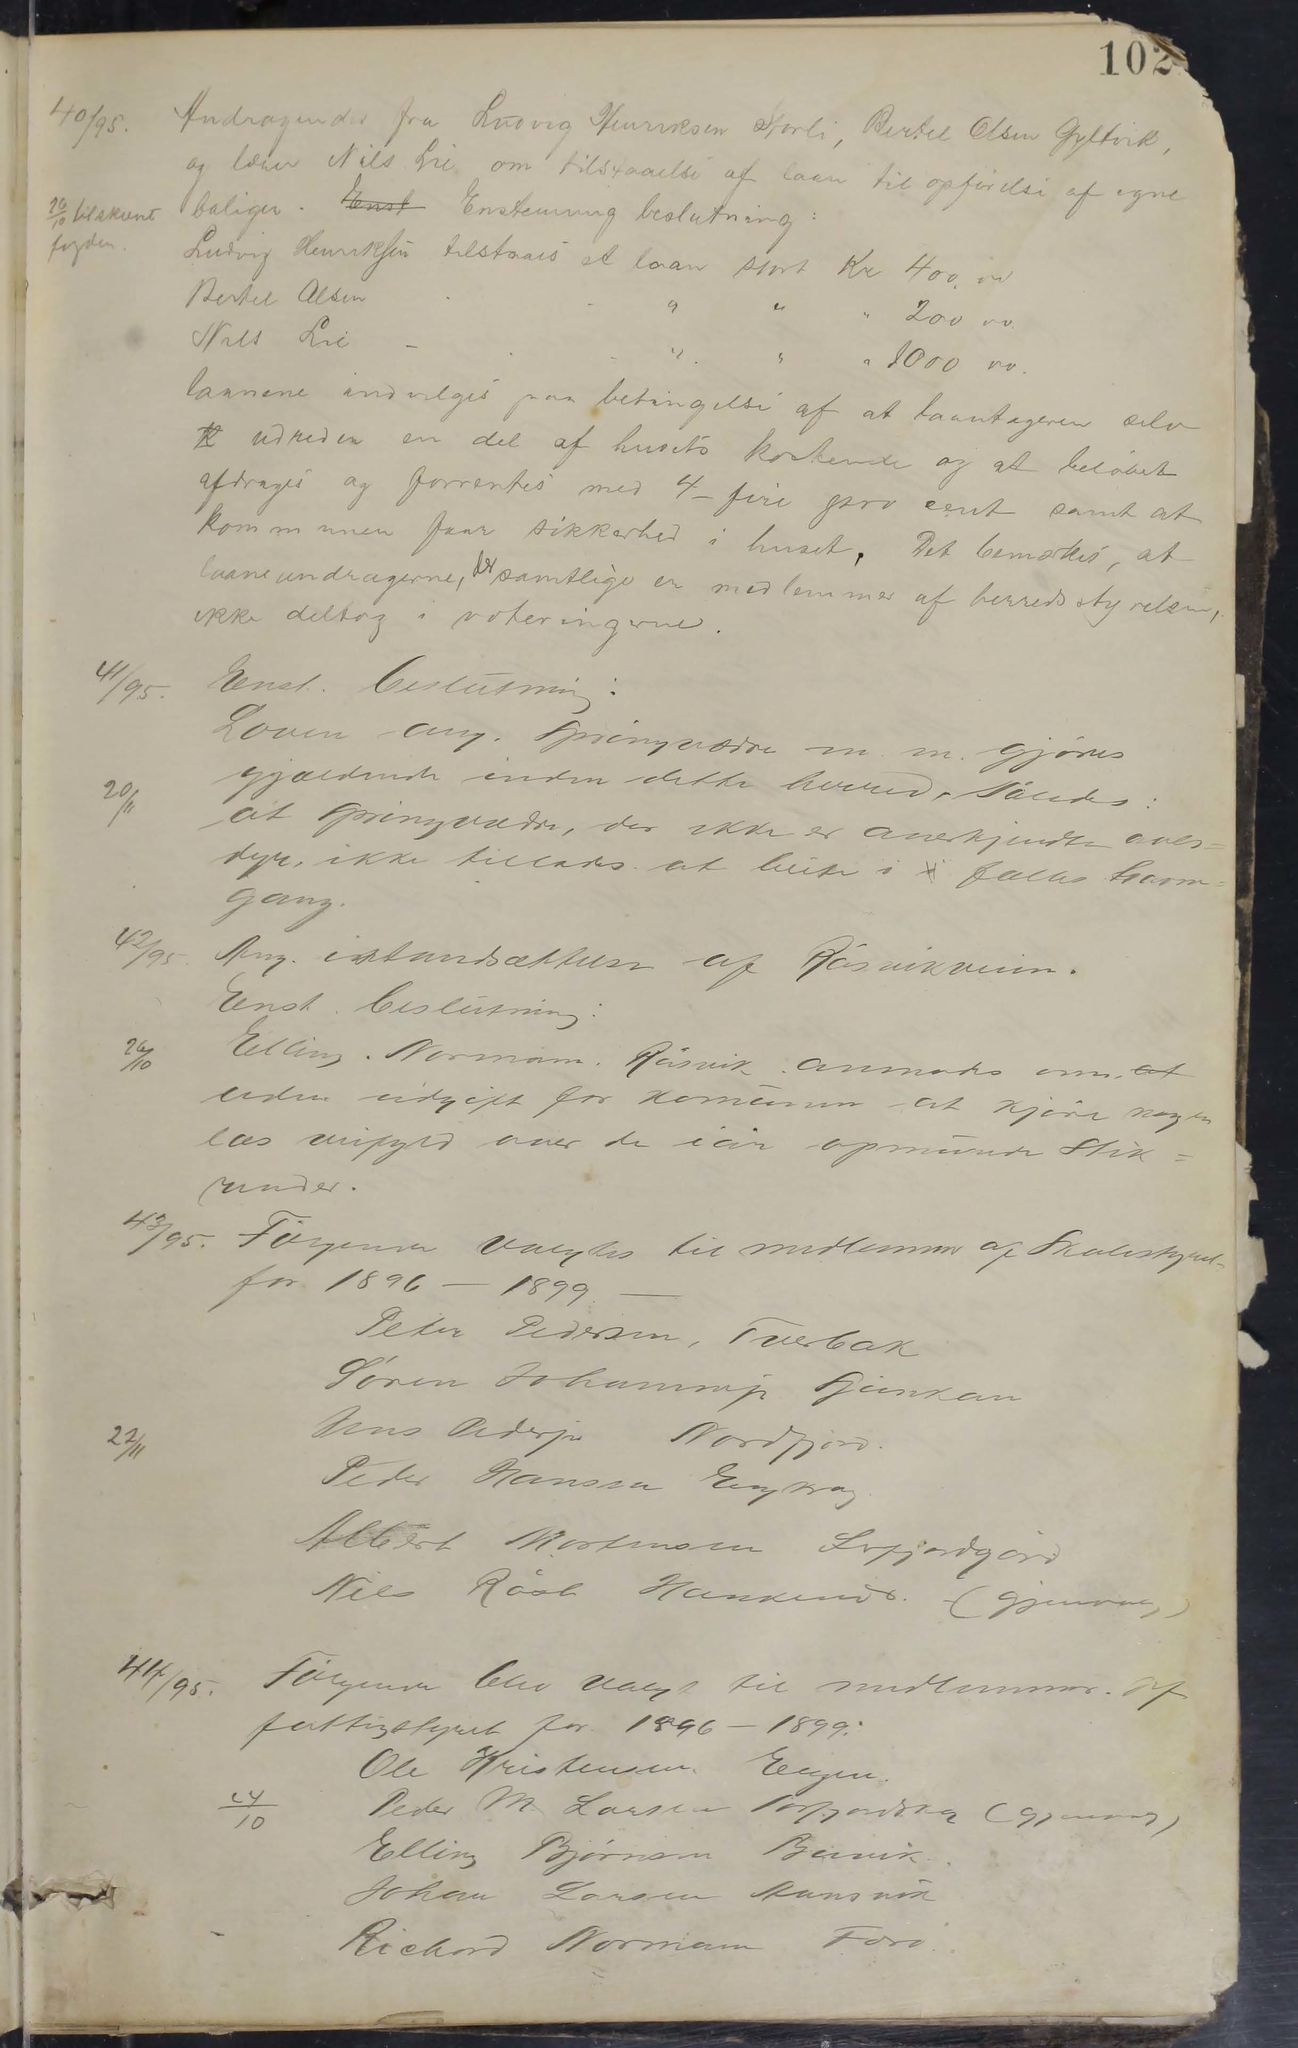 102
40/95. Andragender fra Ludvig Henriksen Storli, Bertel Olsen Gyltvik,
og lærer Nils Lie om tilstaaelse af laan til opførelse af egne
26/10 tilskrevet fogden. boliger. Enst Enstemmig beslutning:
Ludvig Henriksen tilstaaes et laan stort Kr 400. oo
Bertel Olsen - - " " " 200 oo
Nils Lie - - - " " " 1000 oo.
laanene indvilges paa betingelse af at laantageren selv
udreder en del af husets kostende og at beløbet
afdrages og forrentes med 4 - fire pro cent samt at
kommunen faar sikkerhed i huset. Det bemærkes, at
laaneandragerne, der samtlige er medlemmer af herredsstyrelsen,
ikke deltog i voteringerne.
41/95. Enst. beslutning:
Loven ang. springvædre m. m. gjøres
gjældende inden dette herred, således:
20/11 at springvædre, der ikke er anerkjendte avls=
dyr, ikke tillades at beite i fælles havne=
gang.
42/95. Ang. istandsættelse af Råsvikveien.
Enst. beslutning:
26/10 Elling Normann Råsvik anmodes om at
uden udgift for komunen at kjøre nogen
læs veifyld over de iår opmurede Stik=
render.
43/95. Følgende valgtes til medlemmer af Skolestyret
for 1896 - 1899. -
Peter Pedersen, Tverbak
Søren Johannesen
22/11 Jens Pedersen Nordfjord.
Peder Hanssen Engkrog
Albert Mortensen Lerfjordgård
Nils Råsk (gjenvalg)
44/95. Følgende blev valgt til medlemmer af
fattigstyret for 1896 - 1899:
Ole Kristensen Engen.
24/10 Peder M. Larsen (gjenvalg)
Elling Bjørnsen
Johan Larsen Mansvik
Richard Normann Forå.